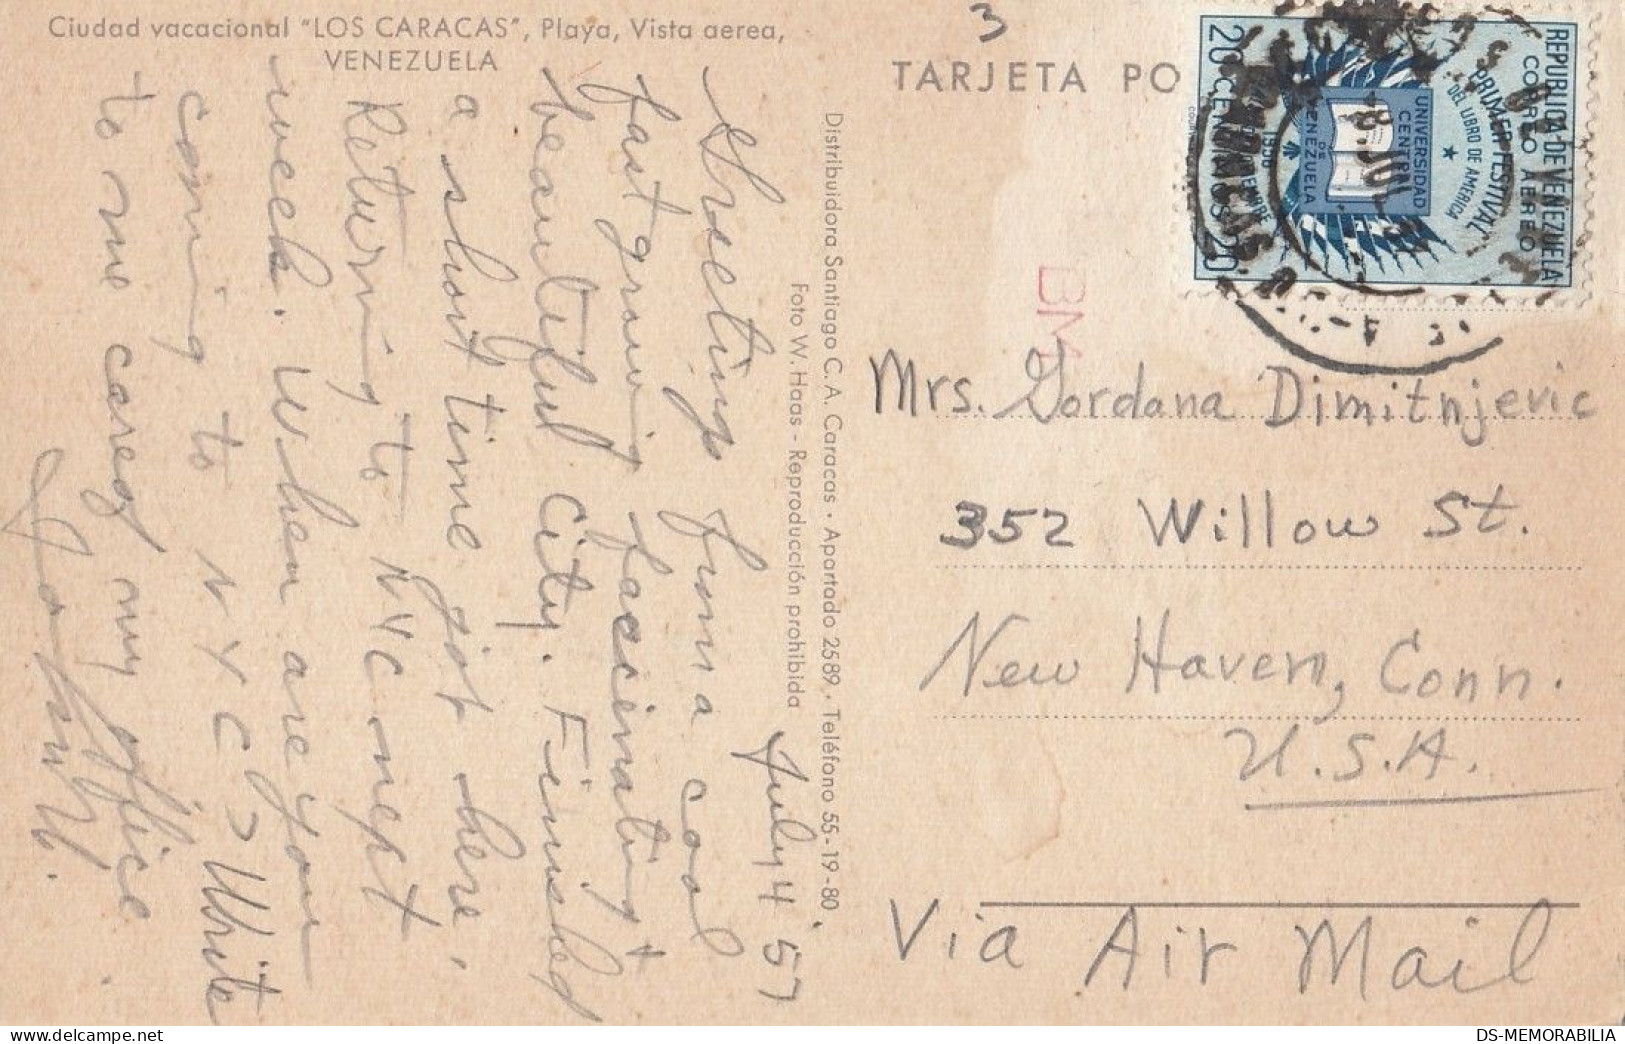 Ciudad vacacional "LOS CARACAS", Playa, Vista aerea,
VENEZUELA
July 4 '57
Greetings from a cool
fast growing facinating +
beautiful City. Finished
a short time job here,
Returning to NYC next
week. When are you
coming to NYC? Write
to me care of my office.
John
Distribuidora Santiago C. A. Caracas · Apartado 2589 · Teléfono 55-19-80
Foto W. Haas - Reproducción prohibida
3
TARJETA PO
REPUBLICA DE VENEZUELA
CORREO AEREO
PRIMER FESTIVAL
DEL LIBRO DE AMERICA
UNIVERSIDAD
CENTRAL
DE
VENEZUELA
1956
20 CENTIMOS 20
BM
Mrs. Gordana Dimitnjevic
352 Willow St.
New Haven, Conn.
U.S.A.
Via Air Mail
DS-MEMORABILIA